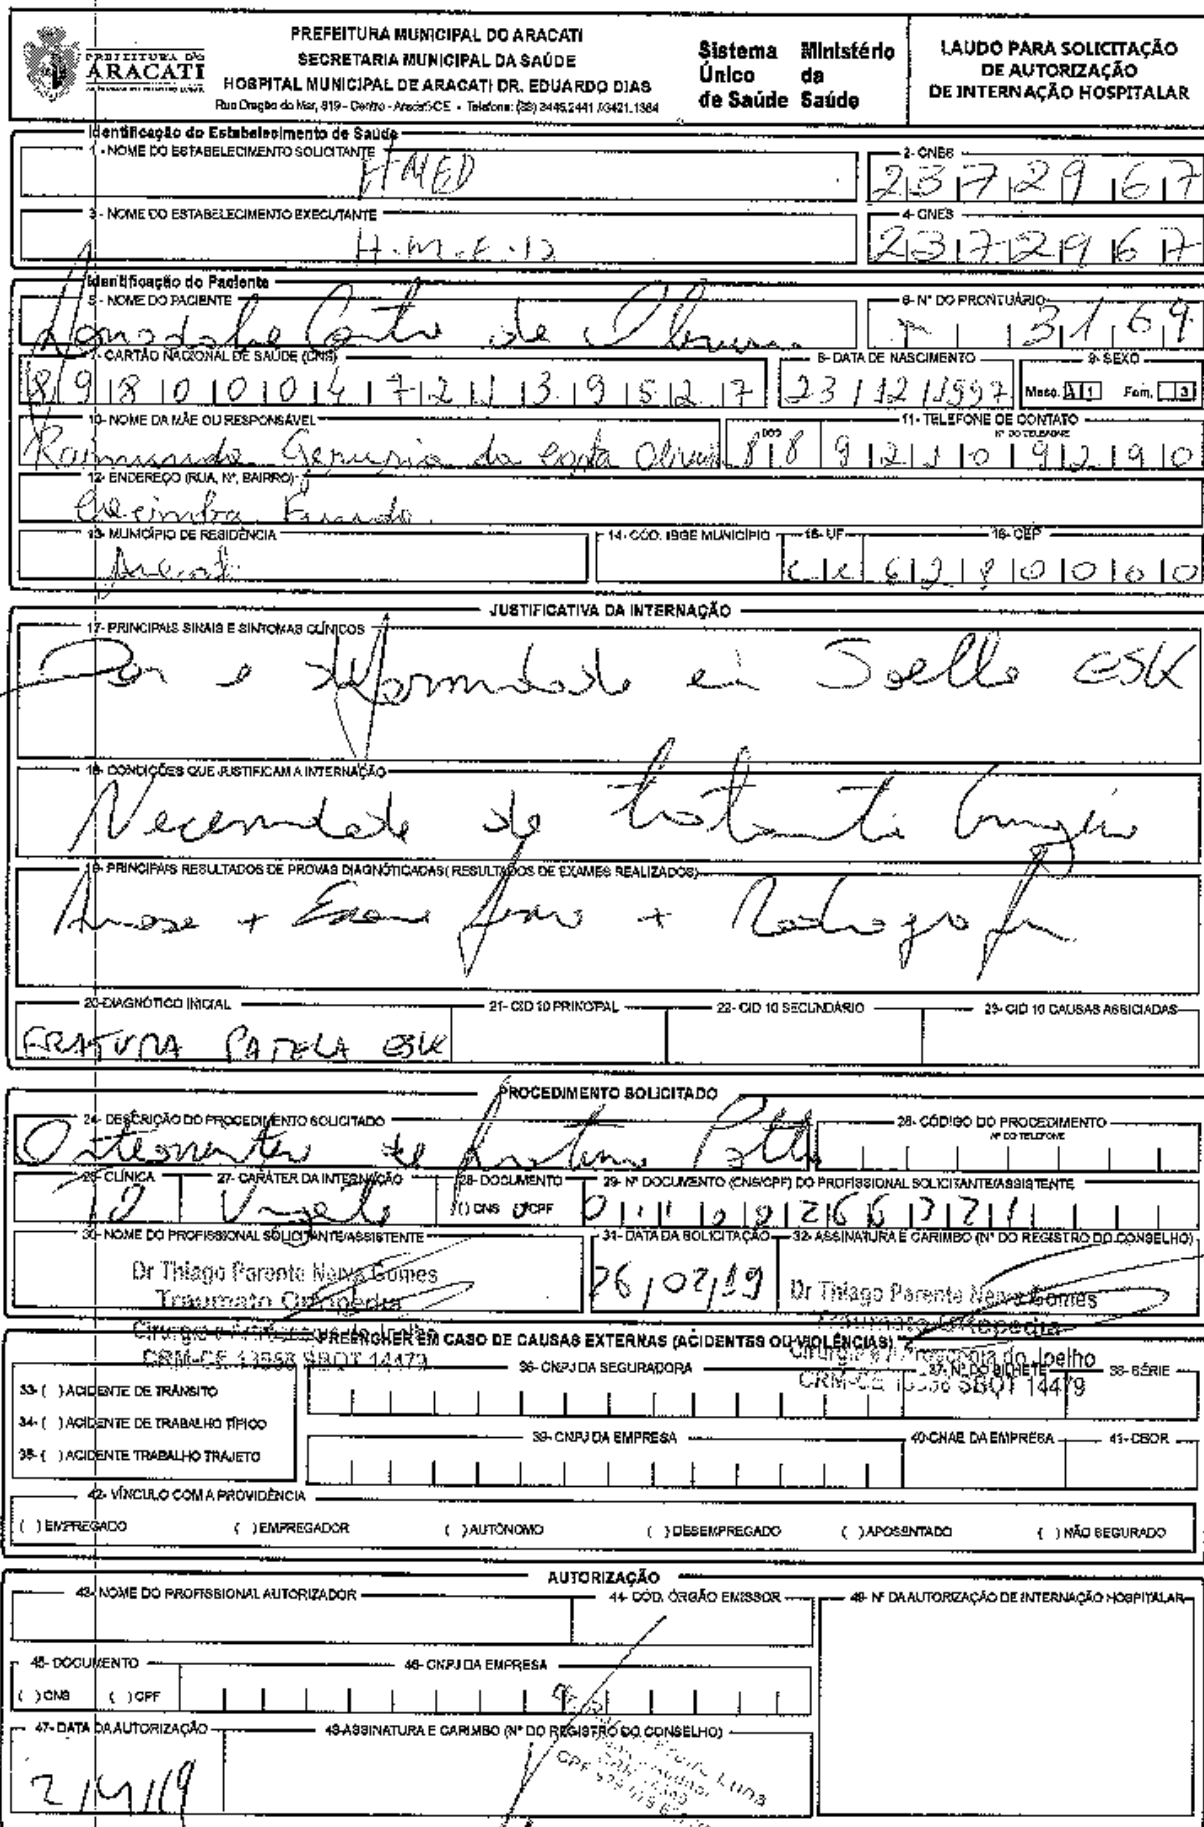 PREFEITURA DO
ARACATI
PREFEITURA MUNICIPAL DO ARACATI
SECRETARIA MUNICIPAL DA SAÚDE
HOSPITAL MUNICIPAL DE ARACATI DR. EDUARDO DIAS
Rua Dragão do Mar, 919 - Centro - Aracati-CE - Telefone: (88) 3446.2441 /3421.1384
Sistema Ministério
Único da
de Saúde Saúde
LAUDO PARA SOLICITAÇÃO
DE AUTORIZAÇÃO
DE INTERNAÇÃO HOSPITALAR
Identificação do Estabelecimento de Saúde
1 - NOME DO ESTABELECIMENTO SOLICITANTE
HMED
2- CNES
2372967
3 - NOME DO ESTABELECIMENTO EXECUTANTE
H.M.E.D
4- CNES
2372967
Identificação do Paciente
5 - NOME DO PACIENTE
de
6- N° DO PRONTUÁRIO
3169
7 - CARTÃO NACIONAL DE SAÚDE (CNS)
8980010472139527
8- DATA DE NASCIMENTO
23/12/1997
9- SEXO
Masc. 1 Fem. 3
10- NOME DA MÃE OU RESPONSÁVEL
Raimunda da Costa Oliveira
11- TELEFONE DE CONTATO
DDD
N° DO TELEFONE
88
12- ENDEREÇO (RUA, N°, BAIRRO)
13- MUNICÍPIO DE RESIDÊNCIA
Aracati
14- CÓD. IBGE MUNICÍPIO
15- UF
ce
16- CEP
62800000
JUSTIFICATIVA DA INTERNAÇÃO
17- PRINCIPAIS SINAIS E SINTOMAS CLÍNICOS
Dor e deformidade em Joelho ESK
18- CONDIÇÕES QUE JUSTIFICAM A INTERNAÇÃO
Necessidade de tratamento cirúrgico
19- PRINCIPAIS RESULTADOS DE PROVAS DIAGNÓTICADAS( RESULTADOS DE EXAMES REALIZADOS)
+ Exame físico + Radiografia
20-DIAGNÓTICO INICIAL
FRATURA PATELA ESK
21- CID 10 PRINCIPAL
22- CID 10 SECUNDÁRIO
23- CID 10 CAUSAS ASSICIADAS
PROCEDIMENTO SOLICITADO
24- DESCRIÇÃO DO PROCEDIMENTO SOLICITADO
de
25- CÓDIGO DO PROCEDIMENTO
N° DO TELEFONE
26- CLÍNICA
27- CARÁTER DA INTERNAÇÃO
28- DOCUMENTO
( ) CNS ( ) CPF
29- N° DOCUMENTO (CNS/CPF) DO PROFISSIONAL SOLICITANTE/ASSISTENTE
30- NOME DO PROFISSIONAL SOLICITANTE/ASSISTENTE
Dr Thiago Parente Neiva Gomes
Traumato Ortopedia
Cirurgia e Artroscopia do Joelho
CRM-CE 13558 SBOT 14479
31- DATA DA SOLICITAÇÃO
26/02/19
32- ASSINATURA E CARIMBO (N° DO REGISTRO DO CONSELHO)
Dr Thiago Parente Neiva Gomes
Traumato Ortopedia
Cirurgia e Artroscopia do Joelho
CRM-CE 13558 SBOT 14479
PREENCHER EM CASO DE CAUSAS EXTERNAS (ACIDENTES OU VIOLÊNCIAS)
33- ( ) ACIDENTE DE TRÂNSITO
34- ( ) ACIDENTE DE TRABALHO TÍPICO
35- ( ) ACIDENTE TRABALHO TRAJETO
36- CNPJ DA SEGURADORA
37- N° DO BILHETE
38- SÉRIE
39- CNPJ DA EMPRESA
40-CNAE DA EMPRESA
41- CBOR
42- VÍNCULO COM A PROVIDÊNCIA
( ) EMPREGADO ( ) EMPREGADOR ( ) AUTÔNOMO ( ) DESEMPREGADO ( ) APOSENTADO ( ) NÃO SEGURADO
AUTORIZAÇÃO
43- NOME DO PROFISSIONAL AUTORIZADOR
44- CÓD. ÓRGÃO EMISSOR
49- N° DA AUTORIZAÇÃO DE INTERNAÇÃO HOSPITALAR
45- DOCUMENTO
( ) CNS ( ) CPF
46- CNPJ DA EMPRESA
47- DATA DA AUTORIZAÇÃO
2/4/19
48-ASSINATURA E CARIMBO (N° DO REGISTRO DO CONSELHO)
Luna
CPF